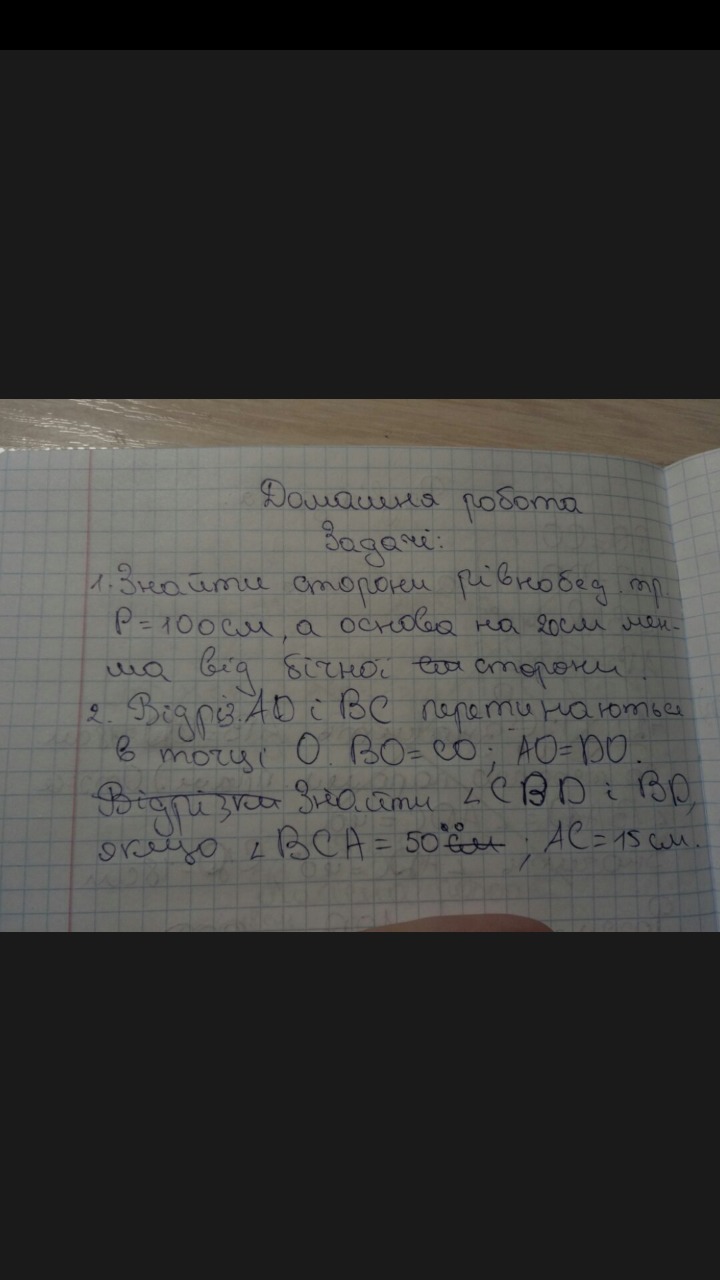 Домашня робота
Задачі:
1. Знайти сторони рівнобед. тр.
P=100см, а основа на 20см мен-
ша від бічної сторони.
2. Відріз. AD і BC перетинаються
в точці O. BO=CO; AO=DO.
Відрізки Знайти ∠CBD і BD,
якщо ∠BCA = 50° см ; AC=15см.